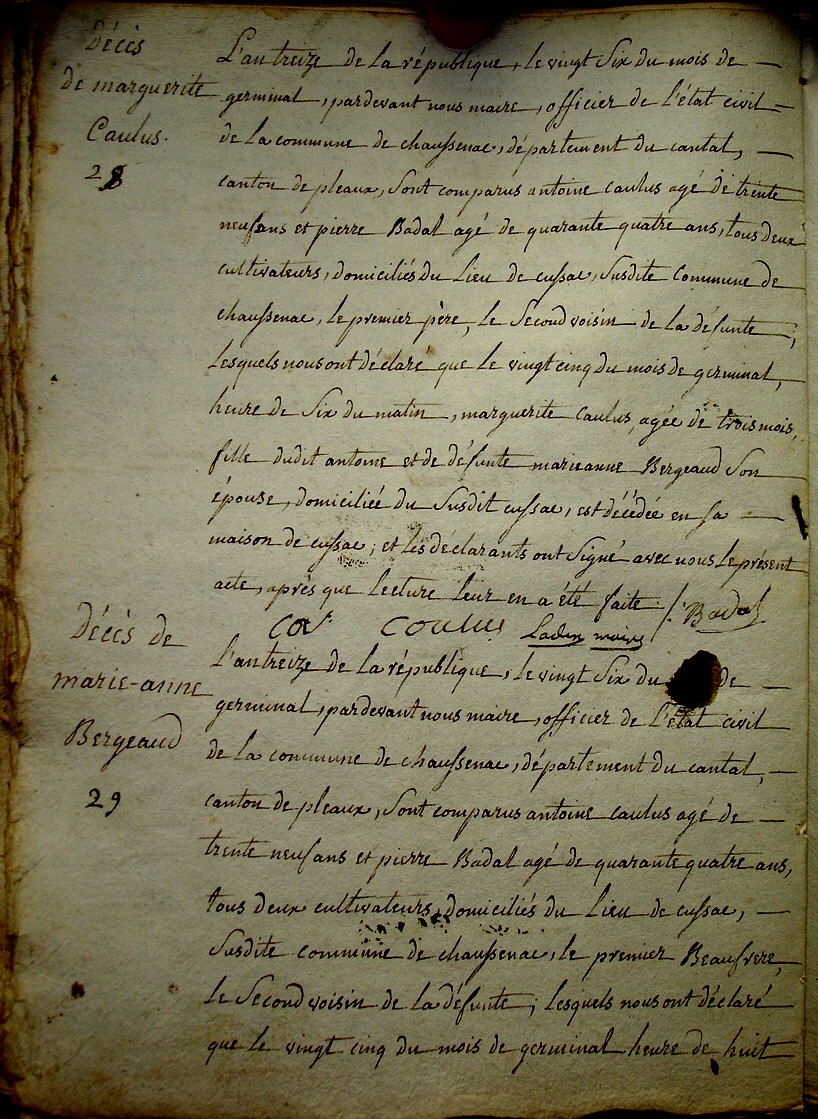 Décès
de marguerite
Caulus.
28
L'an treize de la république, le vingt Six du mois de —
germinal, pardevant nous maire, officier de l'état civil —
de la commune de chaussenac, département du cantal, —
canton de pleaux, Sont comparus antoine caulus agé de trente
neuf ans et pierre Badal agé de quarante quatre ans, tous deux
cultivateurs, domiciliés du Lieu de cussac, Susdite commune de
chaussenac, le premier père, le Second voisin de la défunte,
Lesquels nous ont déclaré que le vingt cinq du mois de germinal,
heure de Six du matin, marguerite caulus, agée de trois mois,
fille dudit antoine et de défunte marieanne Bergeaud Son
épouse, domiciliée du Susdit cussac, est décédée en sa —
maison de cussac; et les déclarants ont Signé avec nous le présent
acte, après que lecture leur en a été faite. Badal
coulus maire
Décès de
marie-anne
Bergeaud
29
L'an treize de la république, le vingt Six du de —
germinal, pardevant nous maire, officier de l'état civil
de la commune de chaussenac, département du cantal, —
canton de pleaux, Sont comparus antoine caulus agé de —
trente neuf ans et pierre Badal agé de quarante quatre ans,
tous deux cultivateurs, domiciliés du Lieu de cussac, —
Susdite commune de chaussenac, le premier Beaufrere,
le Second voisin de la défunte; lesquels nous ont déclaré
que le vingt cinq du mois de germinal heure de huit